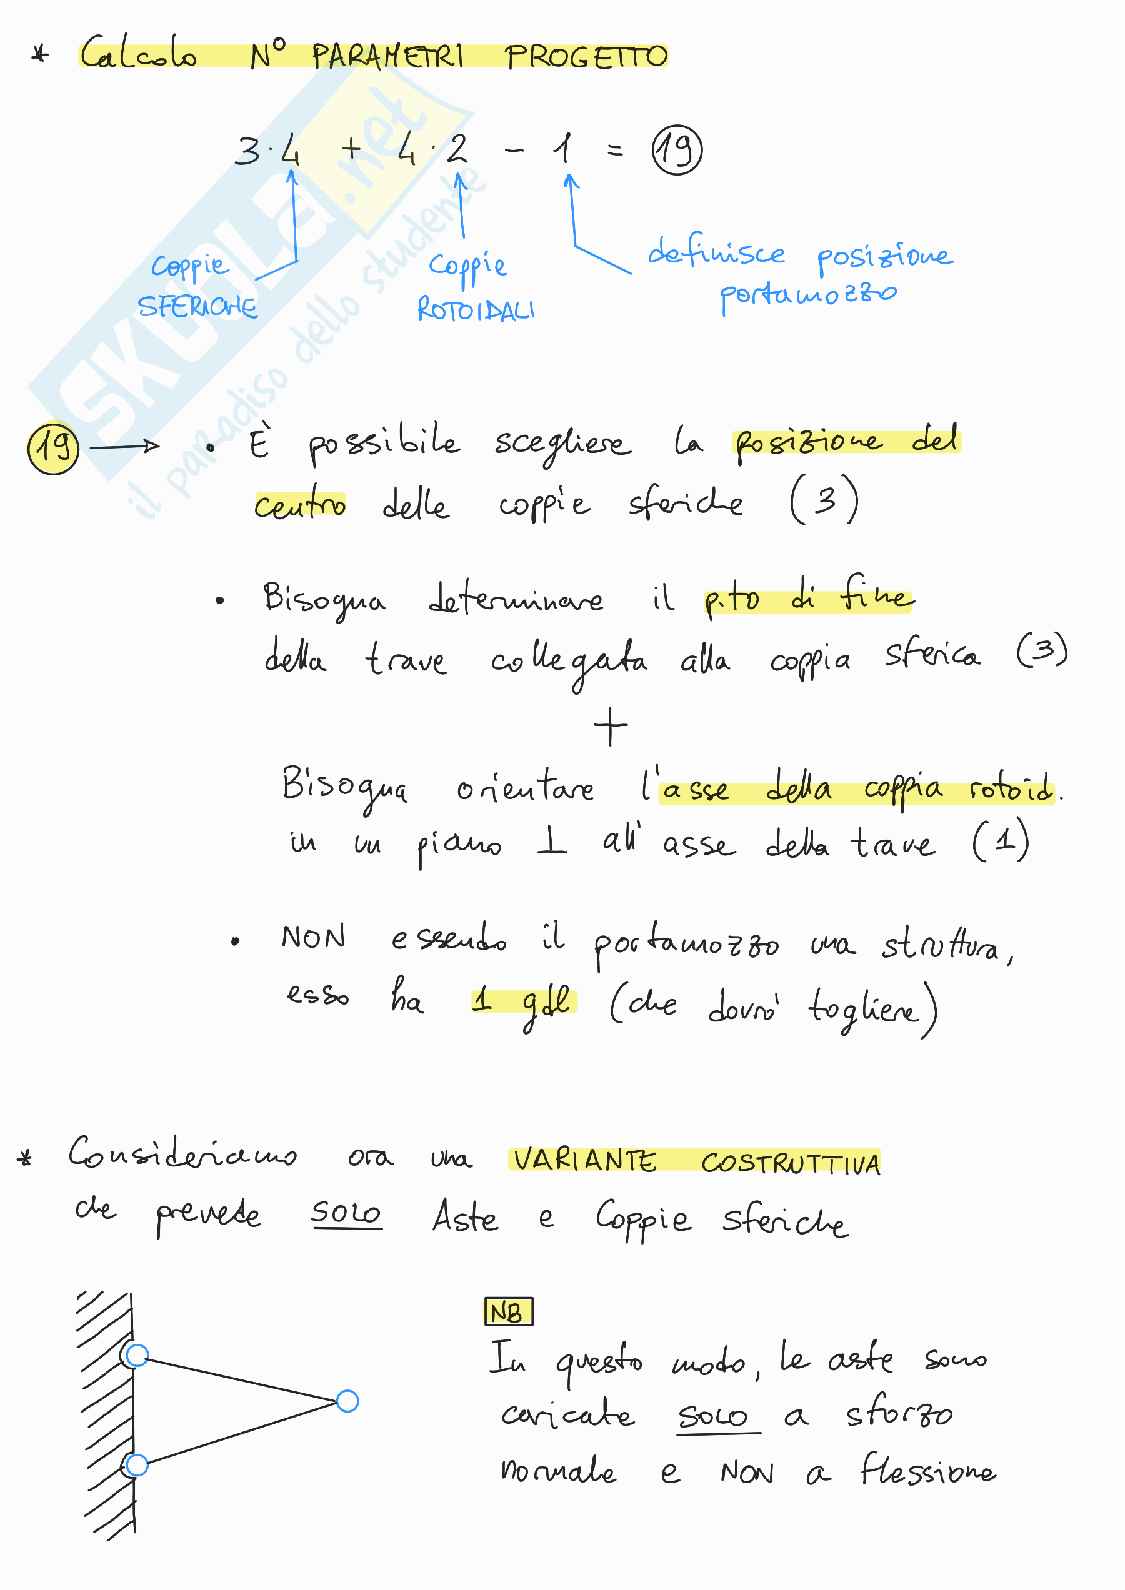 * Calcolo N° PARAMETRI PROGETTO
3·4 + 4·2 - 1 = 19
COPPIE SFERICHE
COPPIE ROTOIDALI
definisce posizione portamozzo
SKUOLA.net
il paradiso dello studente
19 → • È possibile scegliere la posizione del
centro delle coppie sferiche (3)
• Bisogna determinare il p.to di fine
della trave collegata alla coppia sferica (3)
+
Bisogna orientare l'asse della coppia rotoid.
in un piano ⊥ all'asse della trave (1)
• NON essendo il portamozzo una struttura,
esso ha 1 gdl (che dovrò togliere)
* Consideriamo ora una VARIANTE COSTRUTTIVA
che prevede SOLO Aste e Coppie sferiche
NB
In questo modo, le aste sono
caricate SOLO a sforzo
normale e NON a flessione